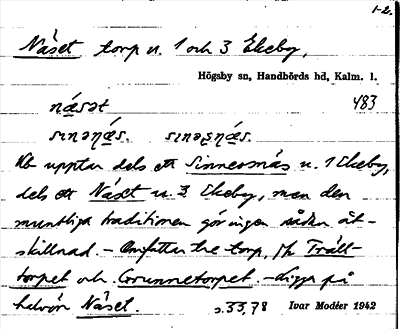 1-2.
Näset torp u. 1 och 3 Ekeby,
Högsby sn, Handbörds hd, Kalm. l.
næ̀sət 483
sınənǽs. sınəsnǽs.
Kb upptar dels ett Sinnernäs u. 1 Ekeby,
dels ett Näset u. 3 Ekeby, men den
muntliga traditionen gör ingen sådan åt-
skillnad. – Omfattar tre torp, jfr Träll-
torpet och Grunnetorpet. – Ligger på
halvön Näset.
s. 33, 78 Ivar Modéer 1942